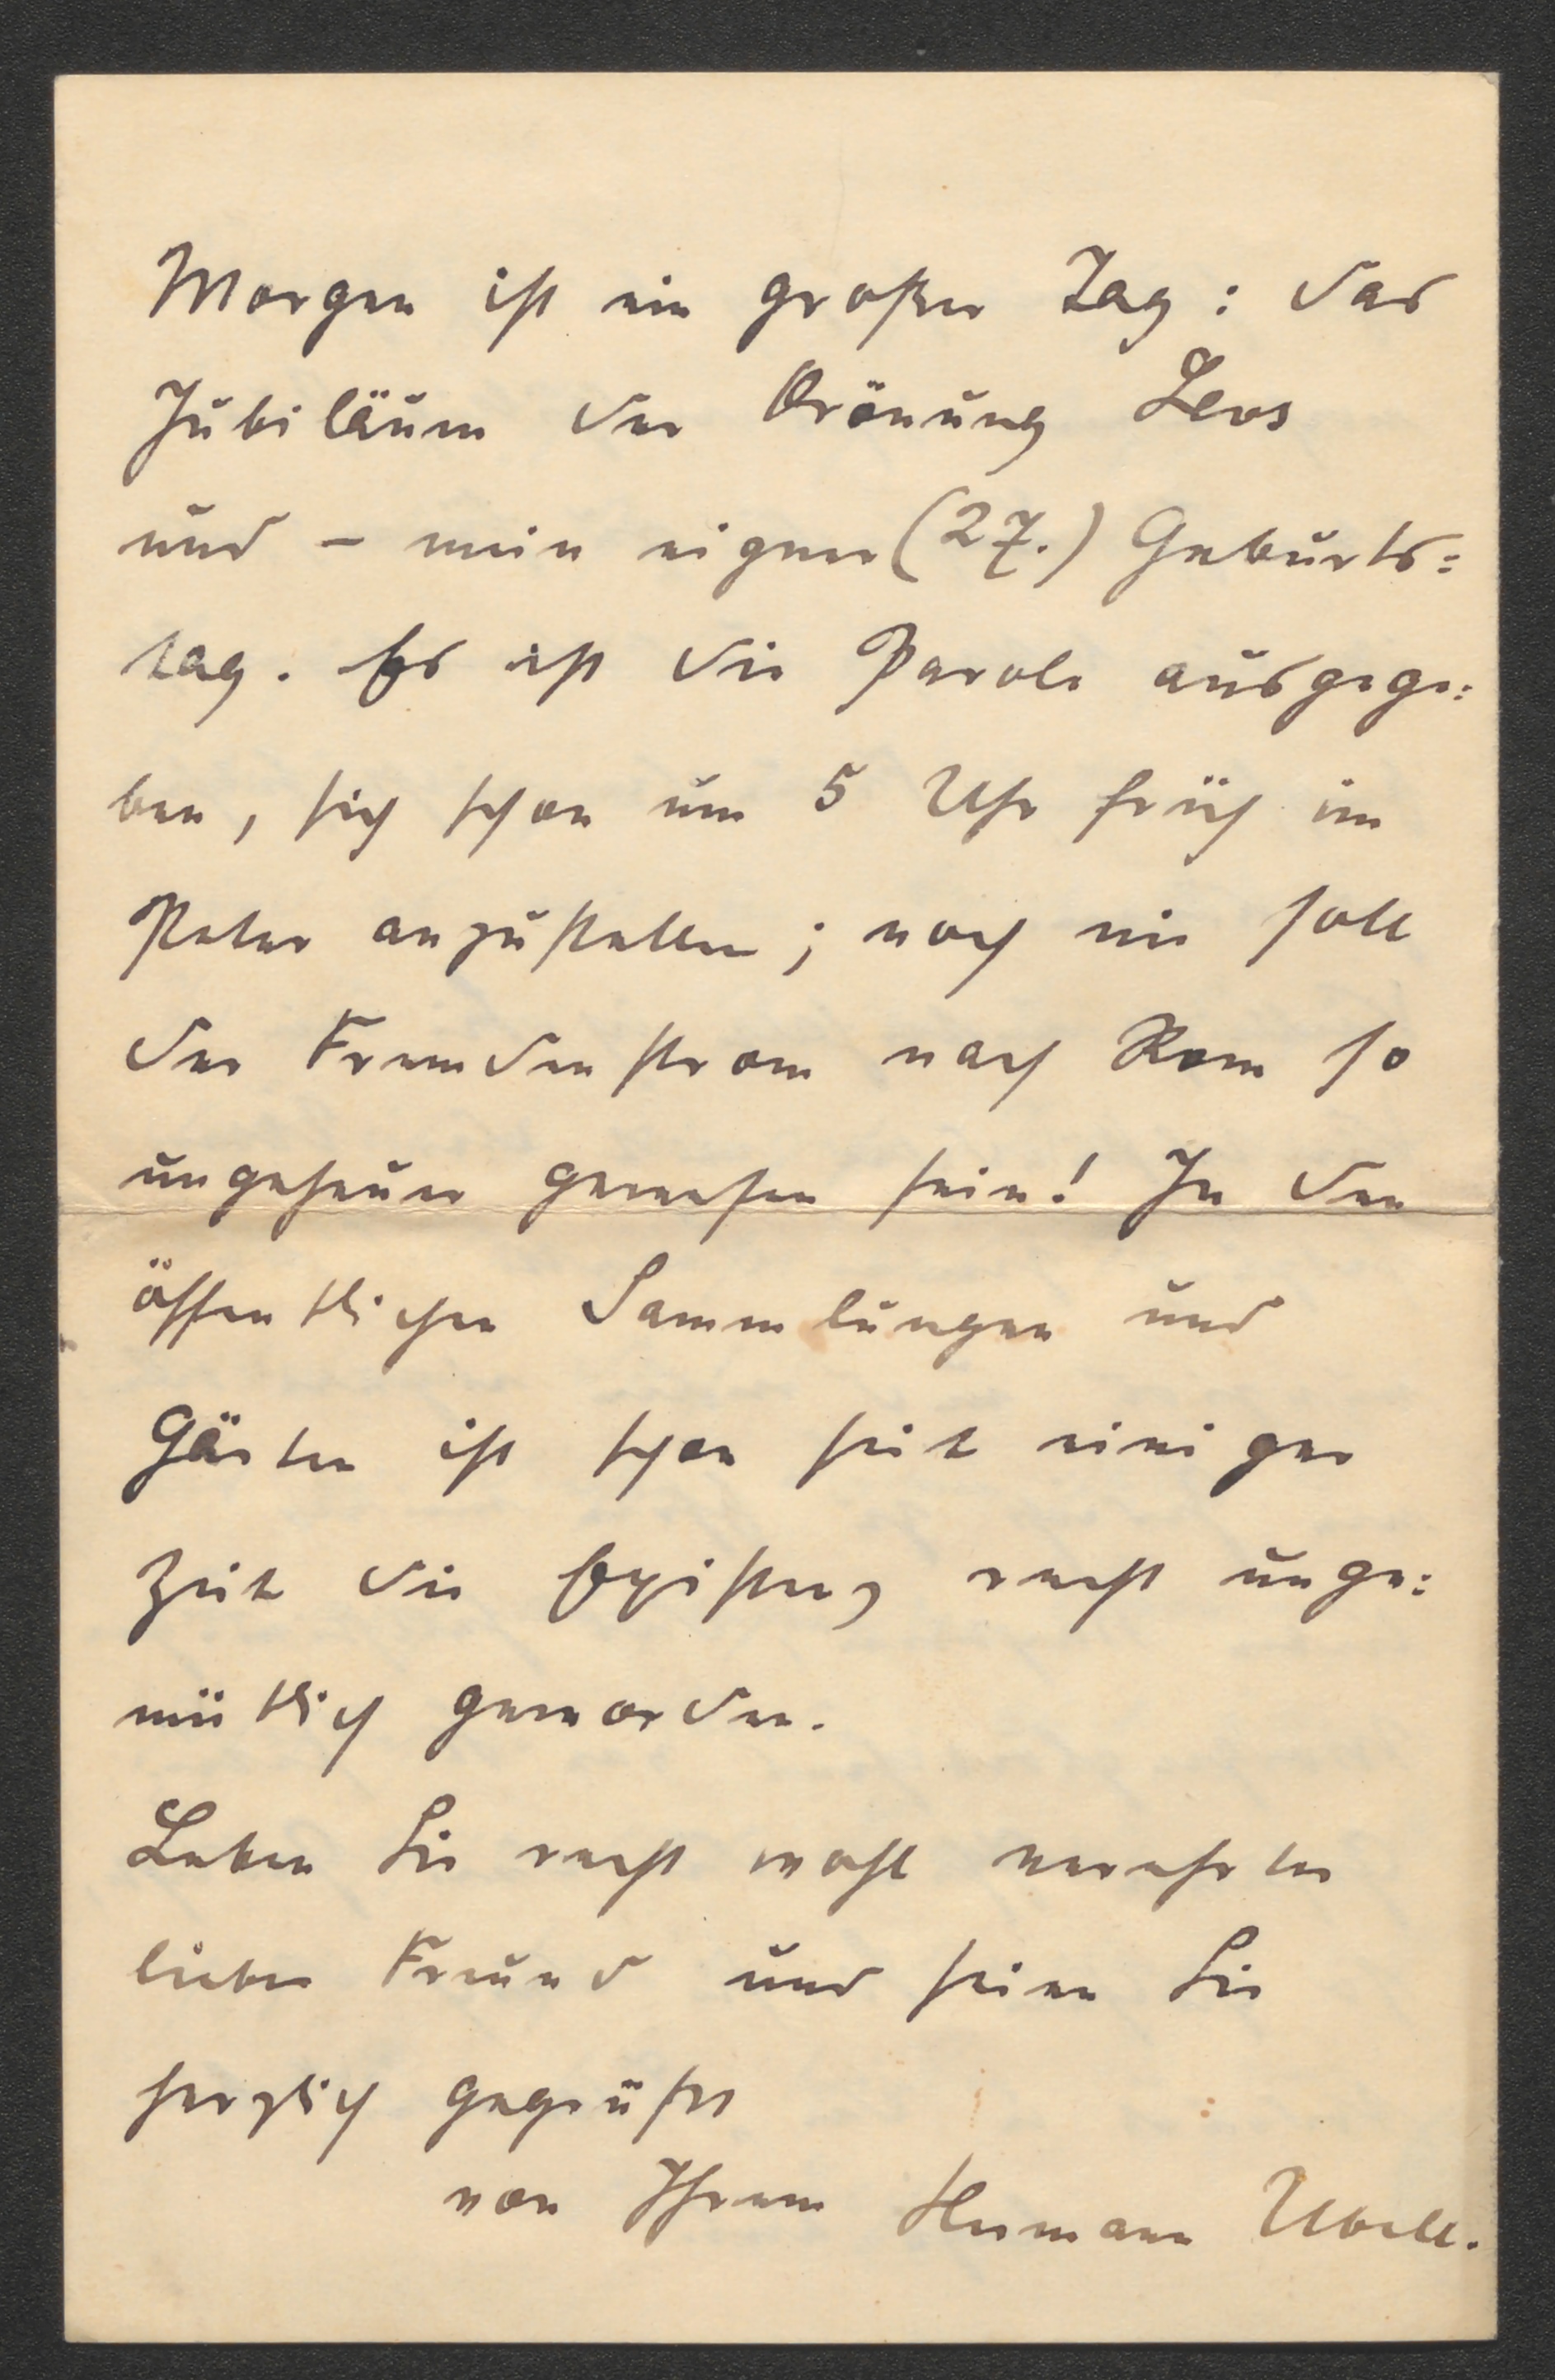 Morgen ist ein großer Tag: das
Jubiläum der Krönung Leos
und – mein eigner (27.) Geburts=
tag. Es ist die Parole ausgege=
ben, sich schon um 5 Uhr früh im
Peter anzustellen; noch nie soll
der Fremdenstrom nach Rom so
ungeheuer gewesen sein! In den
öffentlichen Sammlungen und
Gärten ist schon seit einiger
Zeit die Existenz recht unge=
mütlich geworden.
Leben Sie recht wohl verehrter
lieber Freund und seien Sie
herzlich gegrüßt
von Ihrem Hermann Ubell.